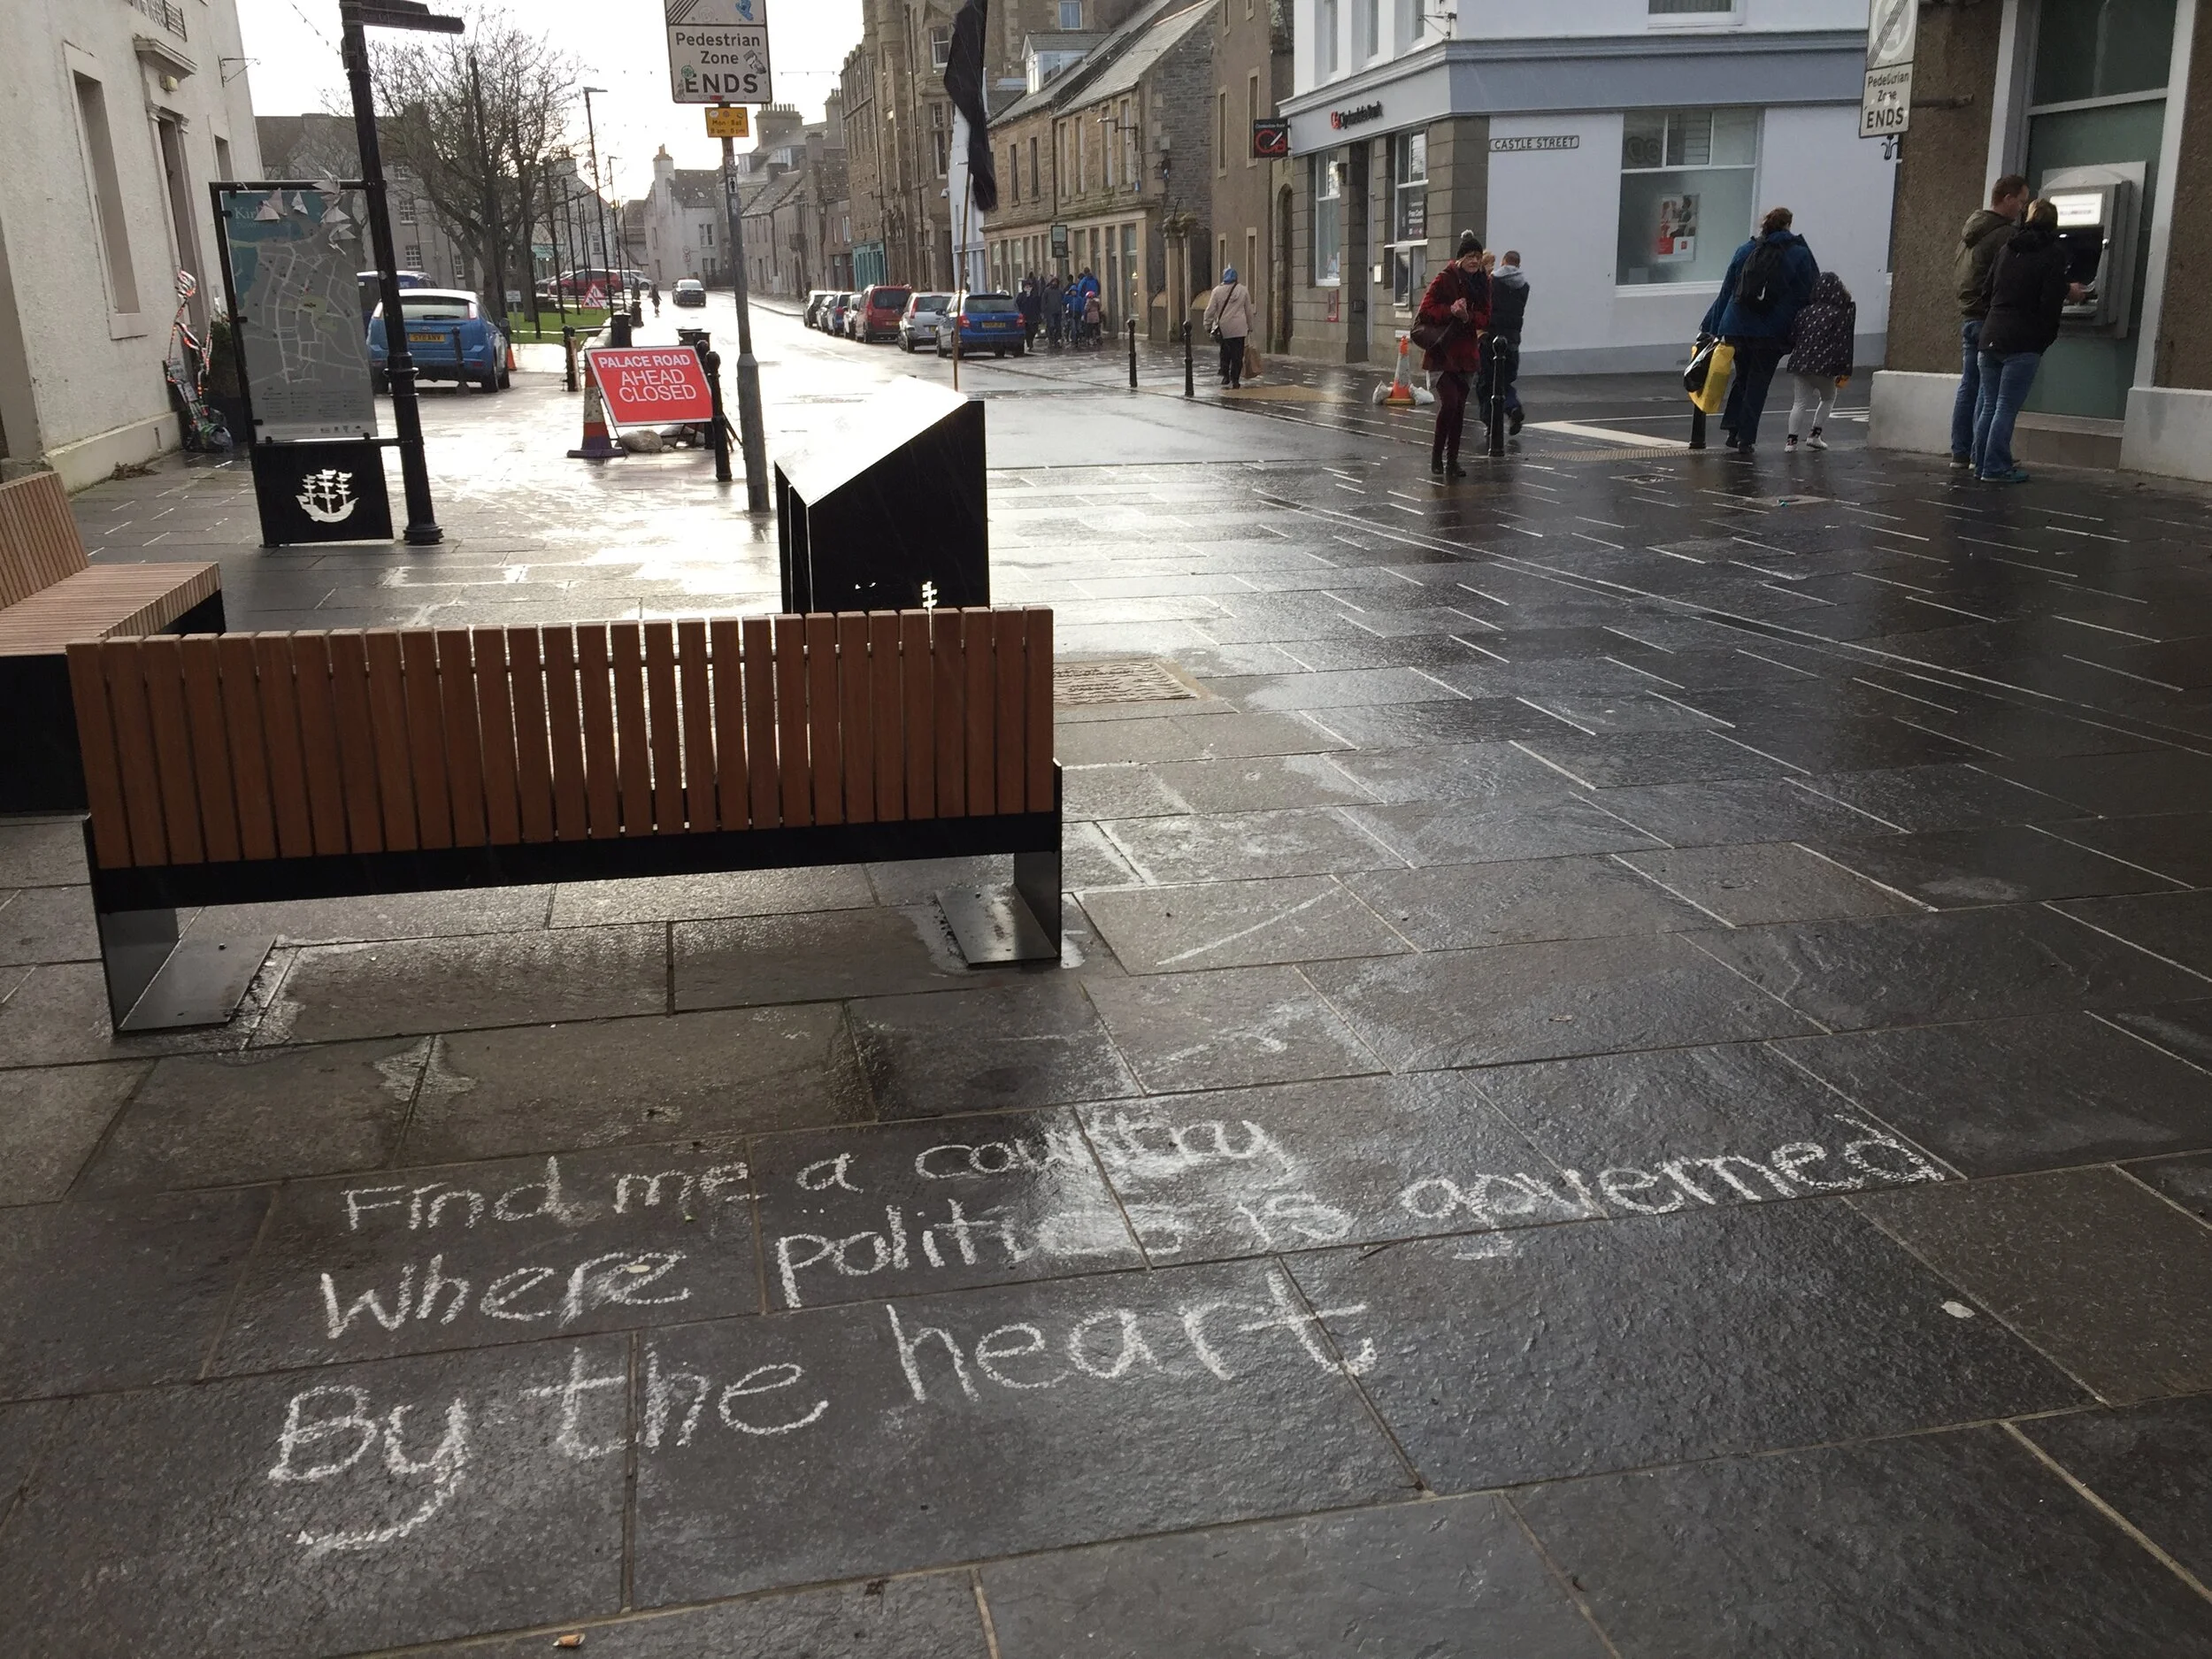 Pedestrian
Zone
ENDS
Mon-Sat
PALACE ROAD
AHEAD
CLOSED
Clydesdale Bank
CASTLE STREET
Pedestrian
Zone
ENDS
Find me a country
Where politics is governed
By the heart